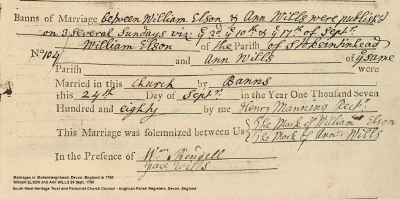 Banns of Marriage between William Elson & Ann Wills were publish'd
on 3 several Sundays viz: ye 3d ye 10th & ye 17th of Septr.
William Elson of the Parish of Stokeinhead
No 104 and Ann Wills of ye same
Parish were
Married in this Church by Banns
this 24th Day of Septr. in the Year One Thousand Seven
Hundred and eighty by me Henry Manning Rectr.
This Marriage was solemnized between Us The Mark of William Elson
The Mark of Ann Wills
In the Presence of Wm Rendell
Grace Wills
Marriages in Stokeinteignhead, Devon, England in 1780
William ELSON and Ann WILLS 24 Sept. 1780
South West Heritage Trust and Parochial Church Council - Anglican Parish Registers, Devon, England